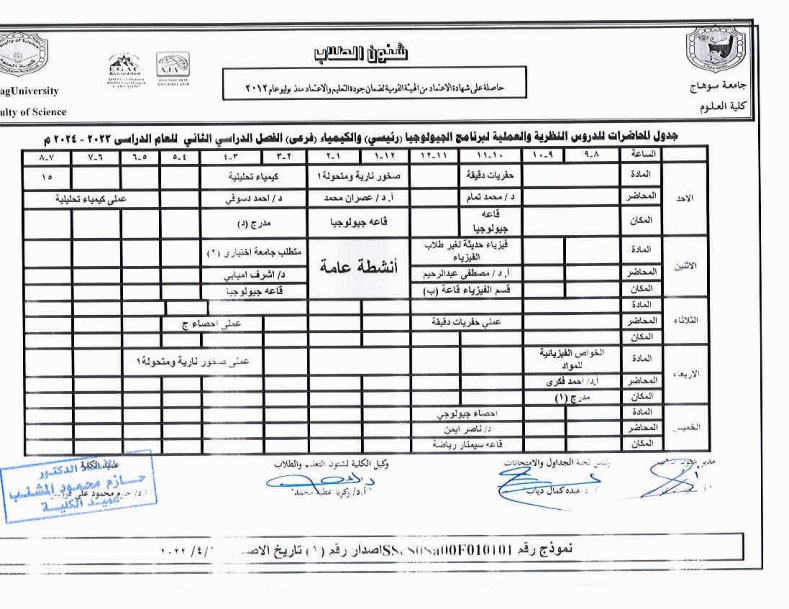 شئون الطلاب
حاصلة على شهادة الاعتماد من الهيئة القومية لضمان جودة التعليم والاعتماد منذ يوليو عام ٢٠١٢
جامعة سوهاج
كلية العلوم
agUniversity
ulty of Science
EGAC
جدول المحاضرات للدروس النظرية والعملية لبرنامج الجيولوجيا (رئيسي) والكيمياء (فرعى) الفصل الدراسي الثاني للعام الدراسى ٢٠٢٣ - ٢٠٢٤ م
الساعة ٨-٩ ٩-١٠ ١٠-١١ ١١-١٢ ١٢-١ ١-٢ ٢-٣ ٣-٤ ٤-٥ ٥-٦ ٦-٧ ٧-٨
الاحد
المادة حفريات دقيقة صخور نارية ومتحولة١ كيمياء تحليلية ١٥
المحاضر د/ محمد تمام أ.د/ عصران محمد د/ احمد دسوقي عملى كيمياء تحليلية
المكان قاعه جيولوجيا قاعه جيولوجيا مدرج (د)
الاثنين
المادة فيزياء حديثة لغير طلاب الفيزياء أنشطة عامة متطلب جامعة اختيارى (٢)
المحاضر أ.د/ مصطفى عبدالرحيم د/ اشرف امبابي
المكان قسم الفيزياء قاعة (ب) قاعه جيولوجيا
الثلاثاء
المادة
المحاضر عملي حفريات دقيقة عملى احصاء ج
المكان
الاربعاء
المادة الخواص الفيزيائية للمواد عملى صخور نارية ومتحولة١
المحاضر أ.د/ احمد فكرى
المكان مدرج (١)
الخميس
المادة احصاء جيولوجي
المحاضر د/ ناصر ايمن
المكان قاعه سيمنار رياضة
مدير
لجنة الجداول والامتحانات
وكيل الكلية لشئون التعليم والطلاب
الكلية
عبده كمال دياب
أ.د/ زكريا عطية محمد
الدكتور
حازم محمود المشنب
عميد الكلية
نموذج رقم SSCS08a00F010101 اصدار رقم (١) تاريخ الاصد